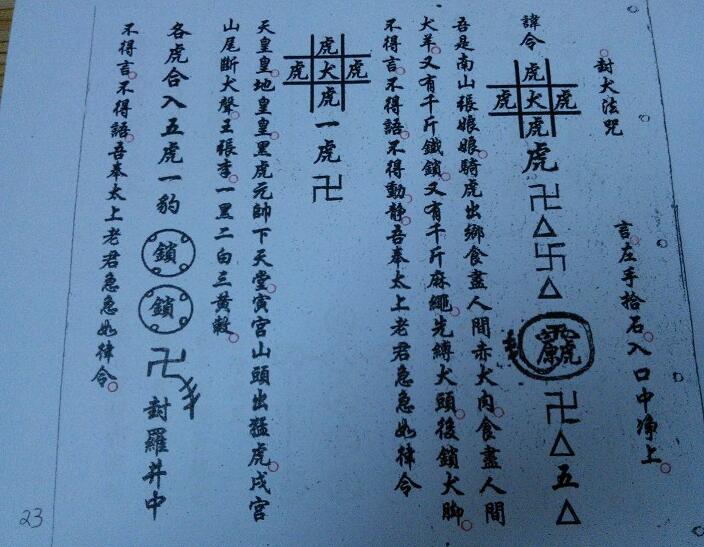 封犬法咒 言。左手拾石。入口中凈上。
諱令
虎
虎犬虎
虎
虎卍△卐△ 卍△五△
吾是南山張娘娘。騎虎出鄉食盡人間赤犬肉。食盡人間
犬羊。又有千斤鐵鎖。又有千斤麻繩。先縛犬頭後鎖犬腳。
不得言。不得語。不得動靜。吾奉太上老君急急如律令
虎
虎犬虎
虎
一虎卍
天皇皇。地皇皇。黑虎元帥下天堂。寅宮山頭出猛虎。戌宮
山尾斷犬聲。王張李。一黑二白三黃殺。
各虎合入五虎一豹 鎖 鎖 卍 封羅井中
不得言。不得語。吾奉太上老君急急如律令。
23